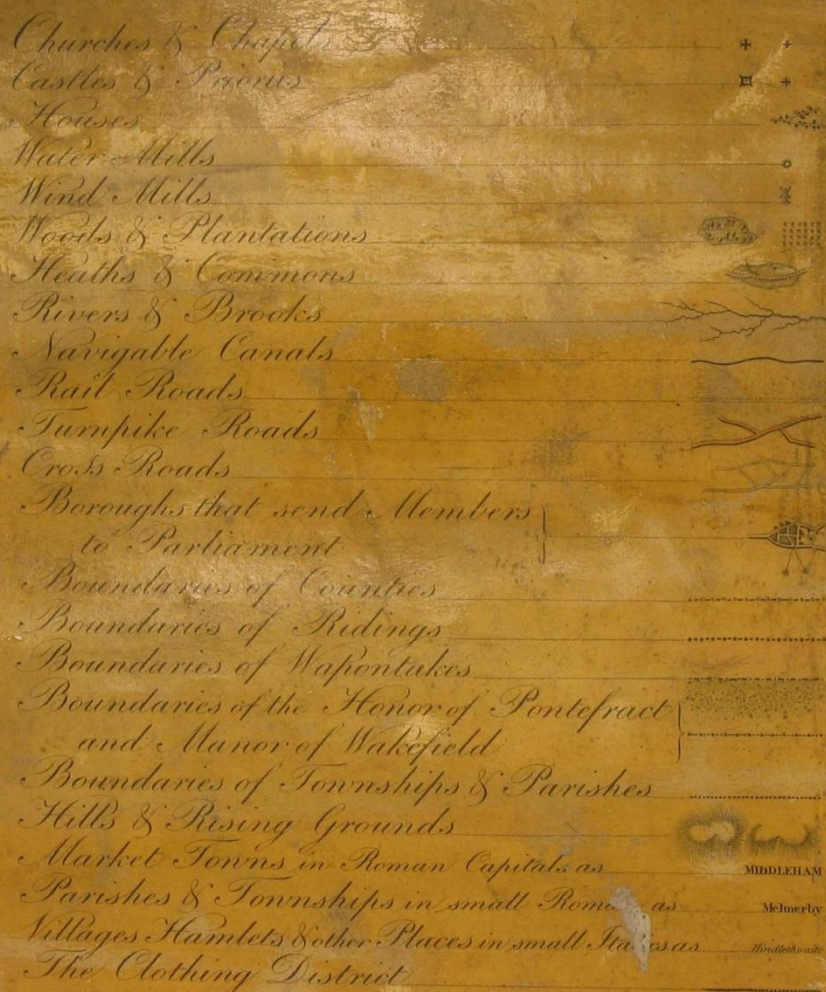 Churches & Chapels
Castles & Priories
Houses
Water Mills
Wind Mills
Woods & Plantations
Heaths & Commons
Rivers & Brooks
Navigable Canals
Rail Roads
Turnpike Roads
Cross Roads
Boroughs that send Members
to Parliament
Boundaries of Counties
Boundaries of Ridings
Boundaries of Wapontakes
Boundaries of the Honor of Pontefract
and Manor of Wakefield
Boundaries of Townships & Parishes
Hills & Rising Grounds
Market Towns in Roman Capitals as MIDDLEHAM
Parishes & Townships in small Roman as Melmerby
Villages Hamlets & other Places in small Italics as Hindlethwaite
The Clothing District